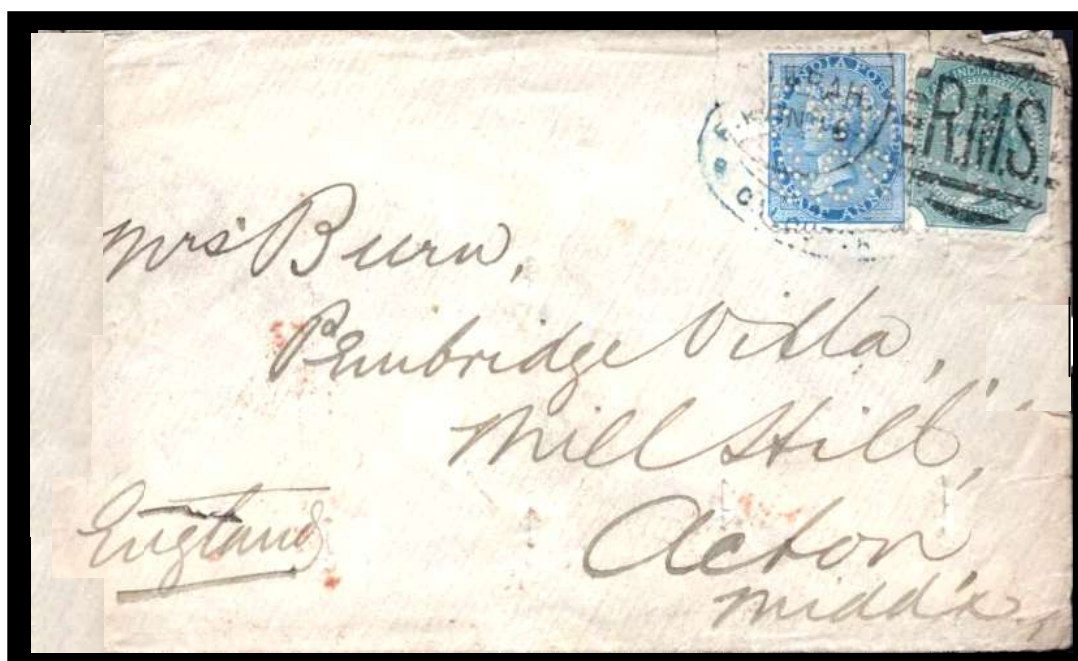 INDIA POS
HALF ANNA
R.M.S.
Mrs Burn,
Pembridge Villa,
Mill Hill,
Acton,
Midd'x.
England